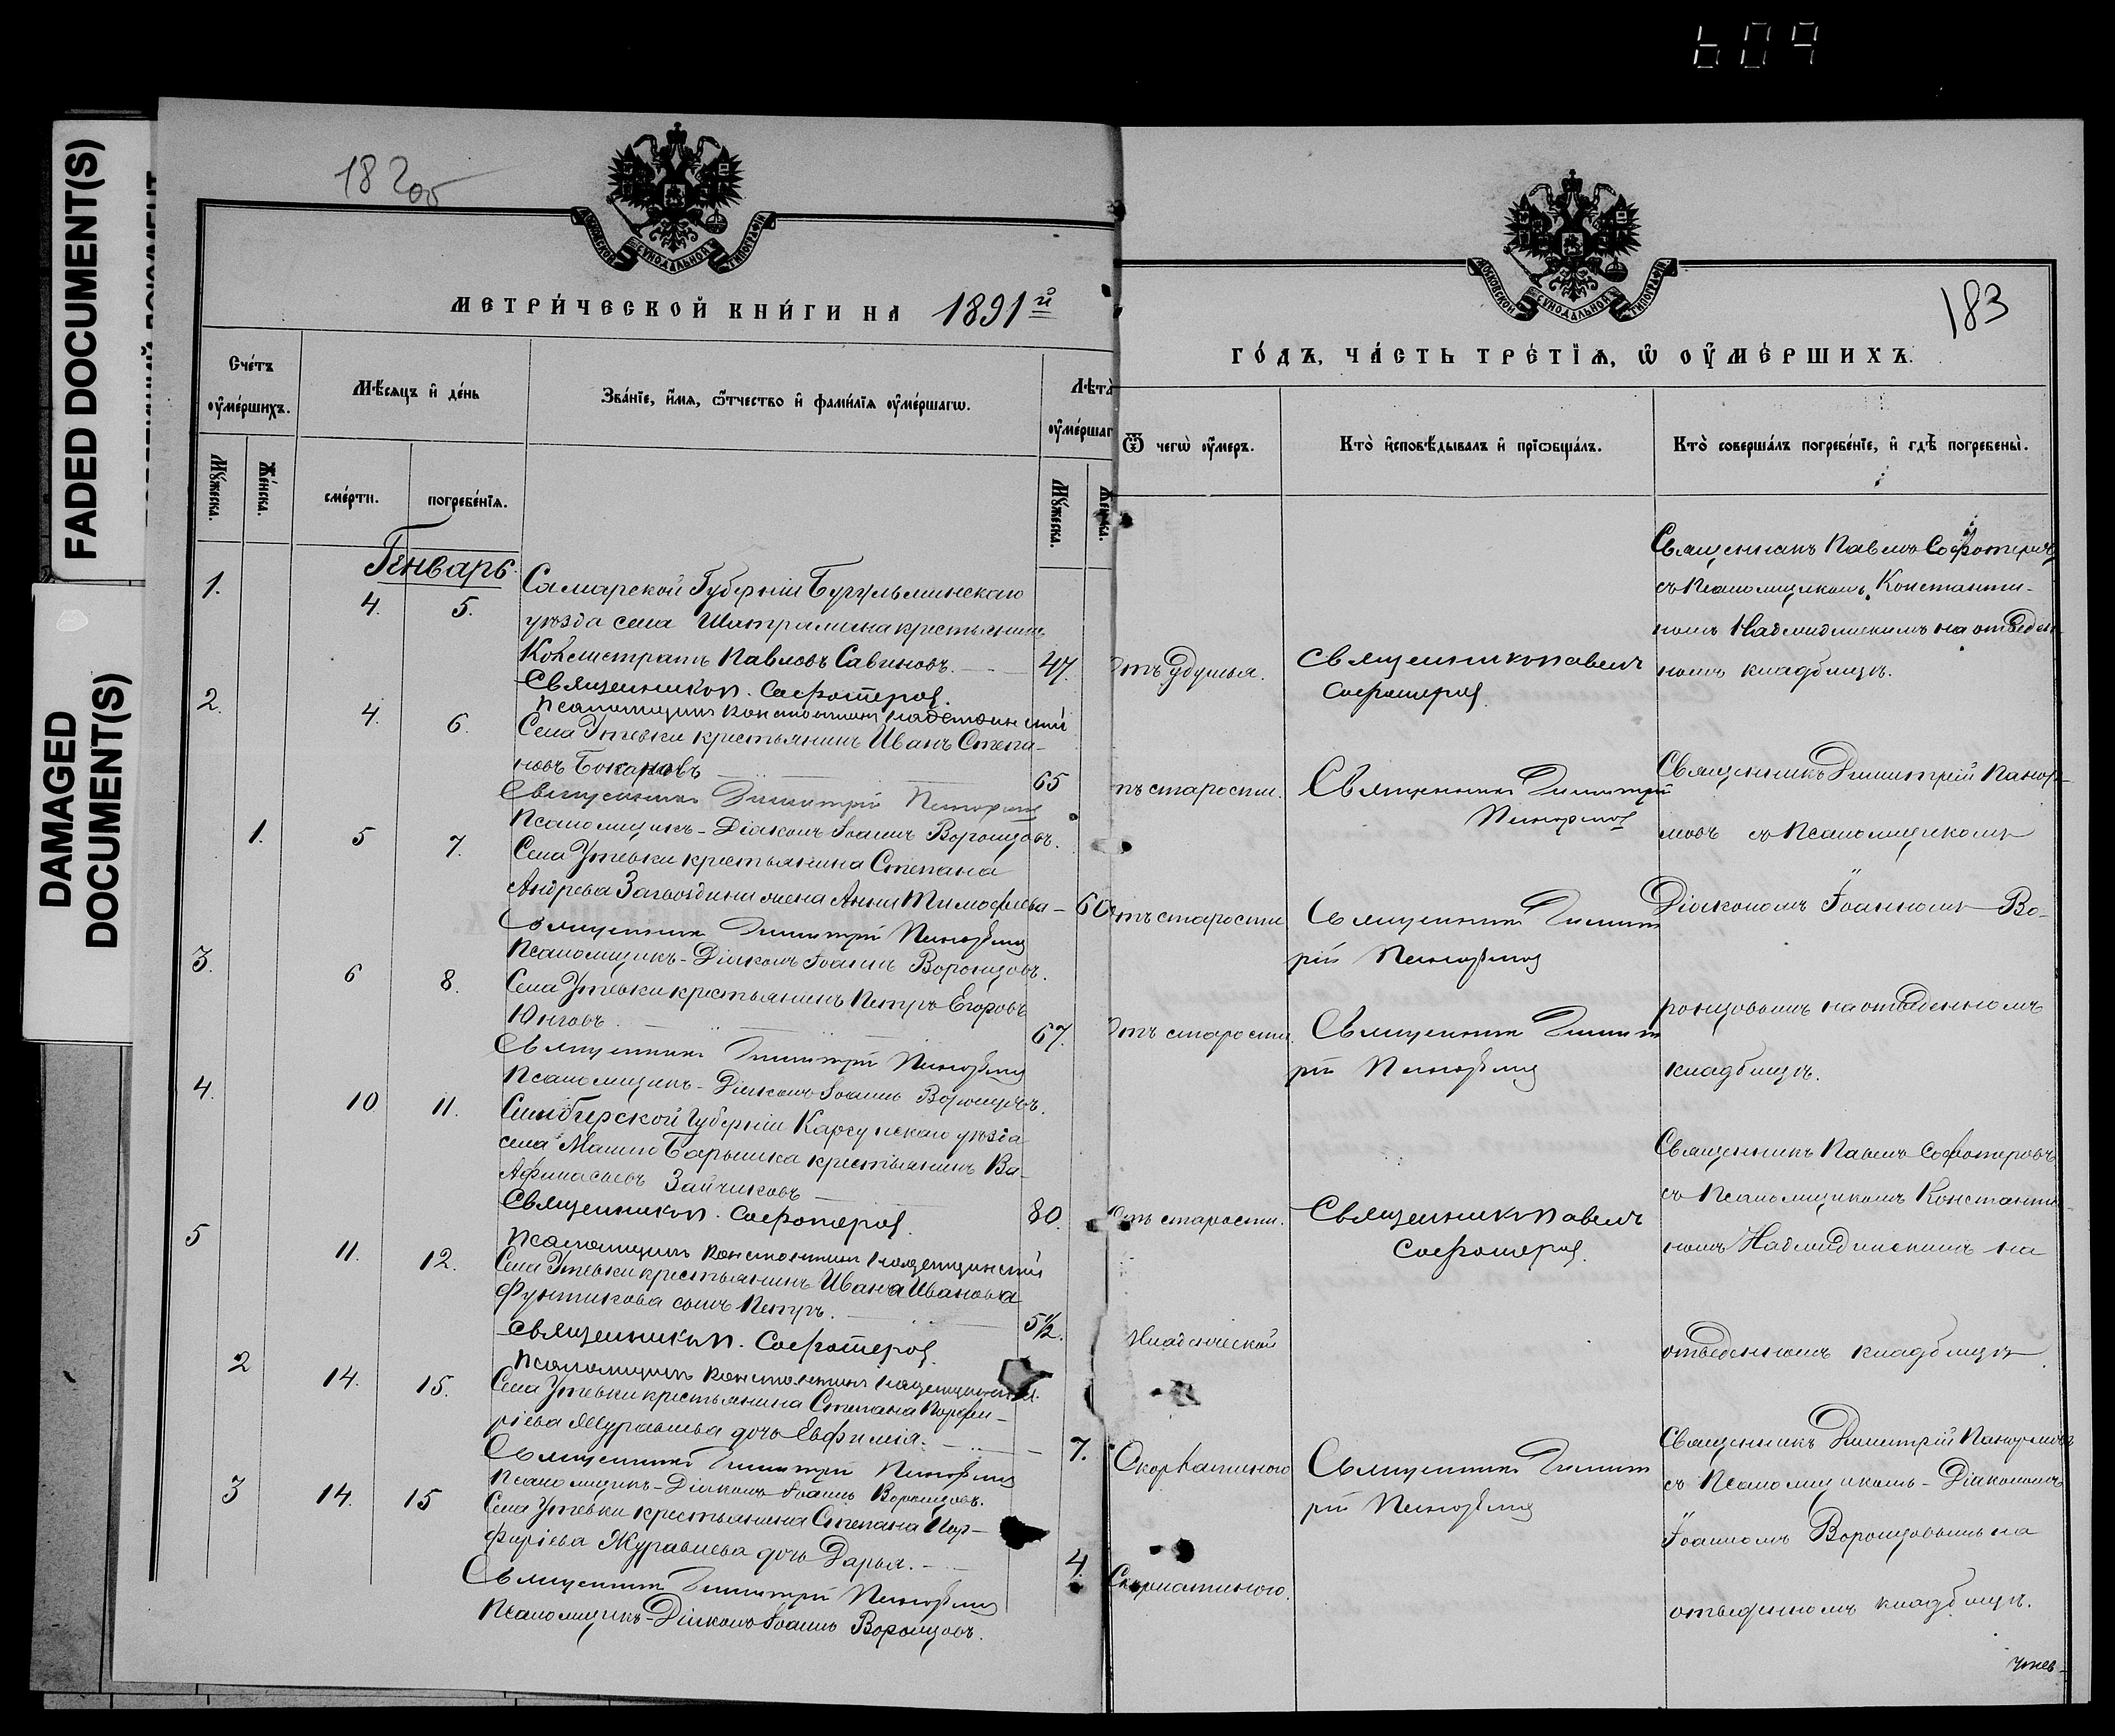 604
FADED DOCUMENT(S)
DAMAGED
DOCUMENT(S)
182 об
МОСКОВСКОЙ СѴНОДАЛЬНОЙ ТИПОГРАФІИ
МЕТРИ́ЧЕСКОЙ КНИ́ГИ НА 1891й
Сче́тъ
ᲂу҆ме́ршихъ.
Мѣ́сяцъ и҆ де́нь
Зва́нїе, и҆́мя, ѿтчество и҆ фами́лїя ᲂу҆ме́ршагѡ.
Лѣта̀
ᲂу҆ме́ршаг
Мꙋ́жеска.
Же́нска.
сме́рти.
погребе́нїя.
Мꙋ́жеска.
Же́нска.
Генварь
1.
4.
5.
Самарской Губерніи Бугульминскаго
уѣзда села Шалтрамина крестьянинъ
Калистратъ Павловъ Савиновъ.
47.
Священникъ П. Софотеровъ.
Псаломщикъ Константинъ Надеждинскій
2.
4.
6.
Села Утевки крестьянинъ Иванъ Степа-
новъ Бокаревъ
65
Священникъ Димитрій Панормовъ
Псаломщикъ-Діаконъ Іоаннъ Воронцовъ.
1.
5
7.
Села Утевки крестьянина Степана
Андреева Загвоздина жена Анна Тимофеева
60
Священникъ Димитрій Панормовъ
Псаломщикъ-Діаконъ Іоаннъ Воронцовъ.
3.
6
8.
Села Утевки крестьянинъ Петръ Егоровъ
Юнговъ.
67.
Священникъ Димитрій Панормовъ
Псаломщикъ-Діаконъ Іоаннъ Воронцовъ.
4.
10
11.
Симбирской Губерніи Карсунскаго уѣзда
села Малаго Барышка крестьянинъ Ва-
Афанасьевъ Зайчиковъ
80.
Священникъ П. Софотеровъ.
Псаломщикъ Константинъ Надеждинскій
5
11.
12.
Села Утевки крестьянинъ Ивана Иванова
Фунтикова сынъ Петръ.
5½.
Священникъ П. Софотеровъ.
Псаломщикъ Константинъ Надеждинскій.
2
14.
15.
Села Утевки крестьянина Степана Порфи-
ріева Журавлева дочь Евфимія.
7.
Священникъ Димитрій Панормовъ
Псаломщикъ-Діаконъ Іоаннъ Воронцовъ.
3
14.
15
Села Утевки крестьянина Степана Пор-
фиріева Журавлева дочь Дарья.
4.
Священникъ Димитрій Панормовъ
Псаломщикъ-Діаконъ Іоаннъ Воронцовъ.
МОСКОВСКОЙ СѴНОДАЛЬНОЙ ТИПОГРАФІИ
183
ГО́ДЪ, ЧА́СТЬ ТРЕ́ТЇЯ, Ѡ҆ ОУ҆МЕ́РШИХЪ.
Ѿ чегѡ̀ ᲂу҆́меръ.
Кто̀ и҆сповѣ́дывалъ и҆ прїѡбща́лъ.
Кто̀ соверша́лъ погребе́нїе, и҆ гдѣ̀ погребены̀.
Отъ удушья.
Священникъ Павелъ
Софотеровъ.
Священникъ Павелъ Софотеровъ
съ Псаломщикомъ Константи-
номъ Надеждинскимъ на отведен-
номъ кладбищѣ.
тъ старости.
Священникъ Димитрій
Панормовъ
Священникъ Димитрій Панор-
мовъ съ Псаломщикомъ
тъ старости
Священникъ Димит
рій Панормовъ
Діакономъ Іоанномъ Во-
Отъ старости.
Священникъ Димит
рій Панормовъ
ронцовымъ на отведенномъ
кладбищѣ.
Отъ старости.
Священникъ Павелъ
Софотеровъ.
Священникъ Павелъ Софотеровъ
съ Псаломщикомъ Константи
номъ Надеждинскимъ на
Младенческой
отведенномъ кладбищѣ.
Скарлатиного
Священникъ Димит
рій Панормовъ
Священникъ Димитрій Панормовъ
съ Псаломщикомъ-Діакономъ
Іоанномъ Воронцовымъ на
Скарлатиного.
отведенномъ кладбищѣ.